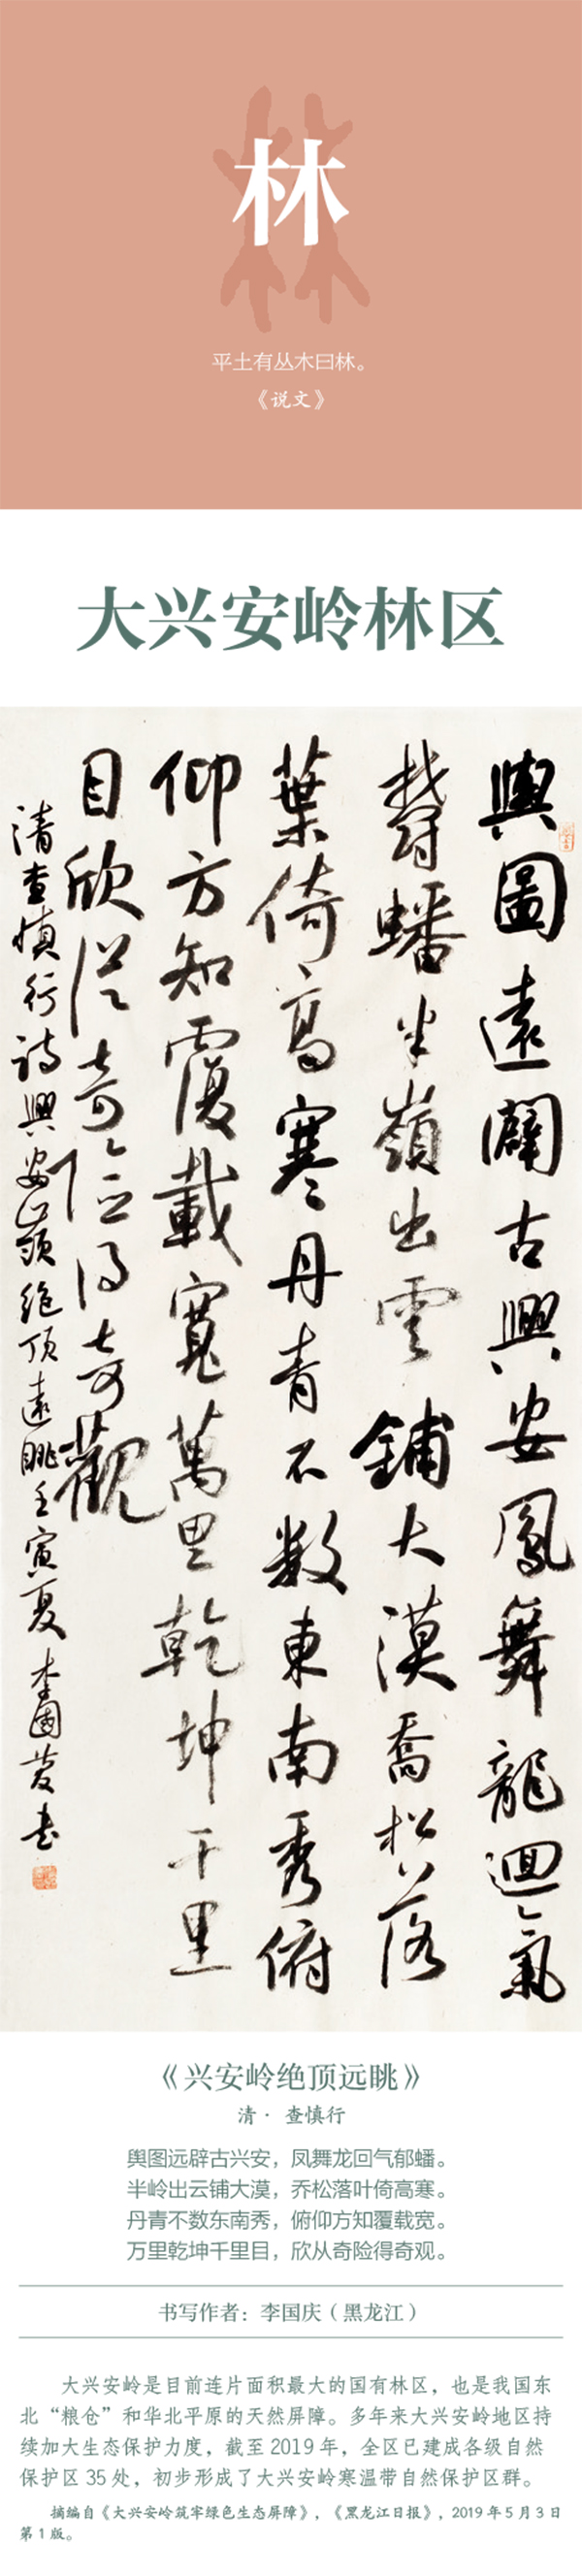 林
平土有丛木曰林。
《说文》
大兴安岭林区
輿圖遠闢古興安鳳舞龍迴氣
鬱蟠半嶺出雲鋪大漠喬松落
葉倚高寒丹青不数東南秀俯
仰方知覆載寬萬里乾坤千里
目欣從奇險得奇觀
清查慎行詩興安嶺絶頂遠眺壬寅夏李國慶书
《兴安岭绝顶远眺》
清· 查慎行
舆图远辟古兴安，凤舞龙回气郁蟠。
半岭出云铺大漠，乔松落叶倚高寒。
丹青不数东南秀，俯仰方知覆载宽。
万里乾坤千里目，欣从奇险得奇观。
书写作者：李国庆（黑龙江）
大兴安岭是目前连片面积最大的国有林区，也是我国东
北“粮仓”和华北平原的天然屏障。多年来大兴安岭地区持
续加大生态保护力度，截至 2019 年，全区已建成各级自然
保护区 35 处，初步形成了大兴安岭寒温带自然保护区群。
摘编自《大兴安岭筑牢绿色生态屏障》，《黑龙江日报》，2019 年 5 月 3 日
第 1 版。